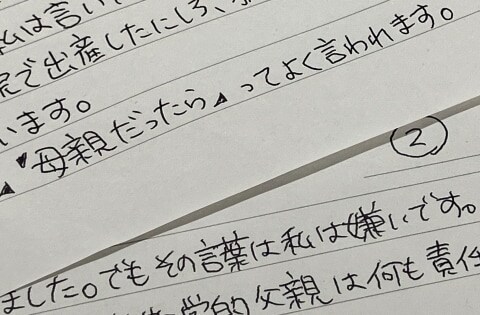 私は言い
院で出産したにしろ、
います。
▲"母親だったら▲ってよく言われます。
②
ました。でもその言葉は私は嫌いです。
学的父親は何も責任